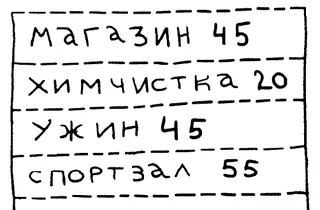 магазин 45
химчистка 20
ужин 45
спортзал 55